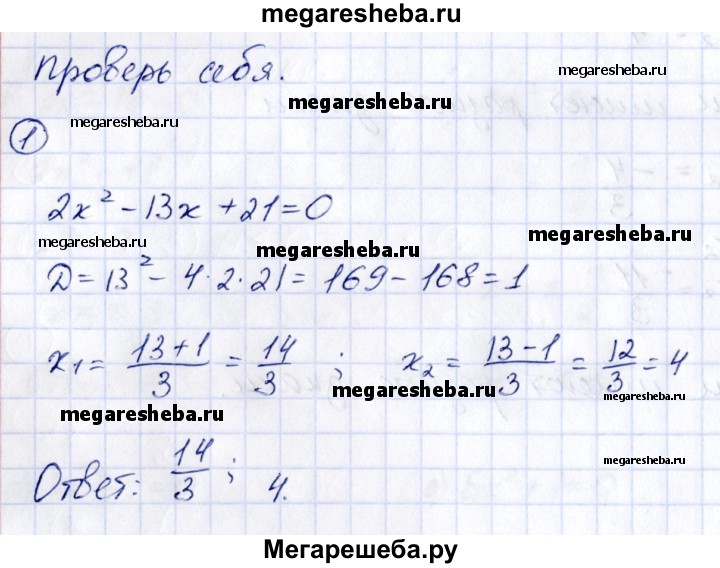 megaresheba.ru
проверь себя.
megaresheba.ru
megaresheba.ru
1 megaresheba.ru
2x² - 13x + 21 = 0
megaresheba.ru
megaresheba.ru
megaresheba.ru
D = 13² - 4 · 2 · 21 = 169 - 168 = 1
x₁ = (13+1)/3 = 14/3 ; x₂ = (13-1)/3 = 12/3 = 4
megaresheba.ru
megaresheba.ru
megaresheba.ru
Ответ: 14/3 ; 4.
megaresheba.ru
Мегарешеба.ру